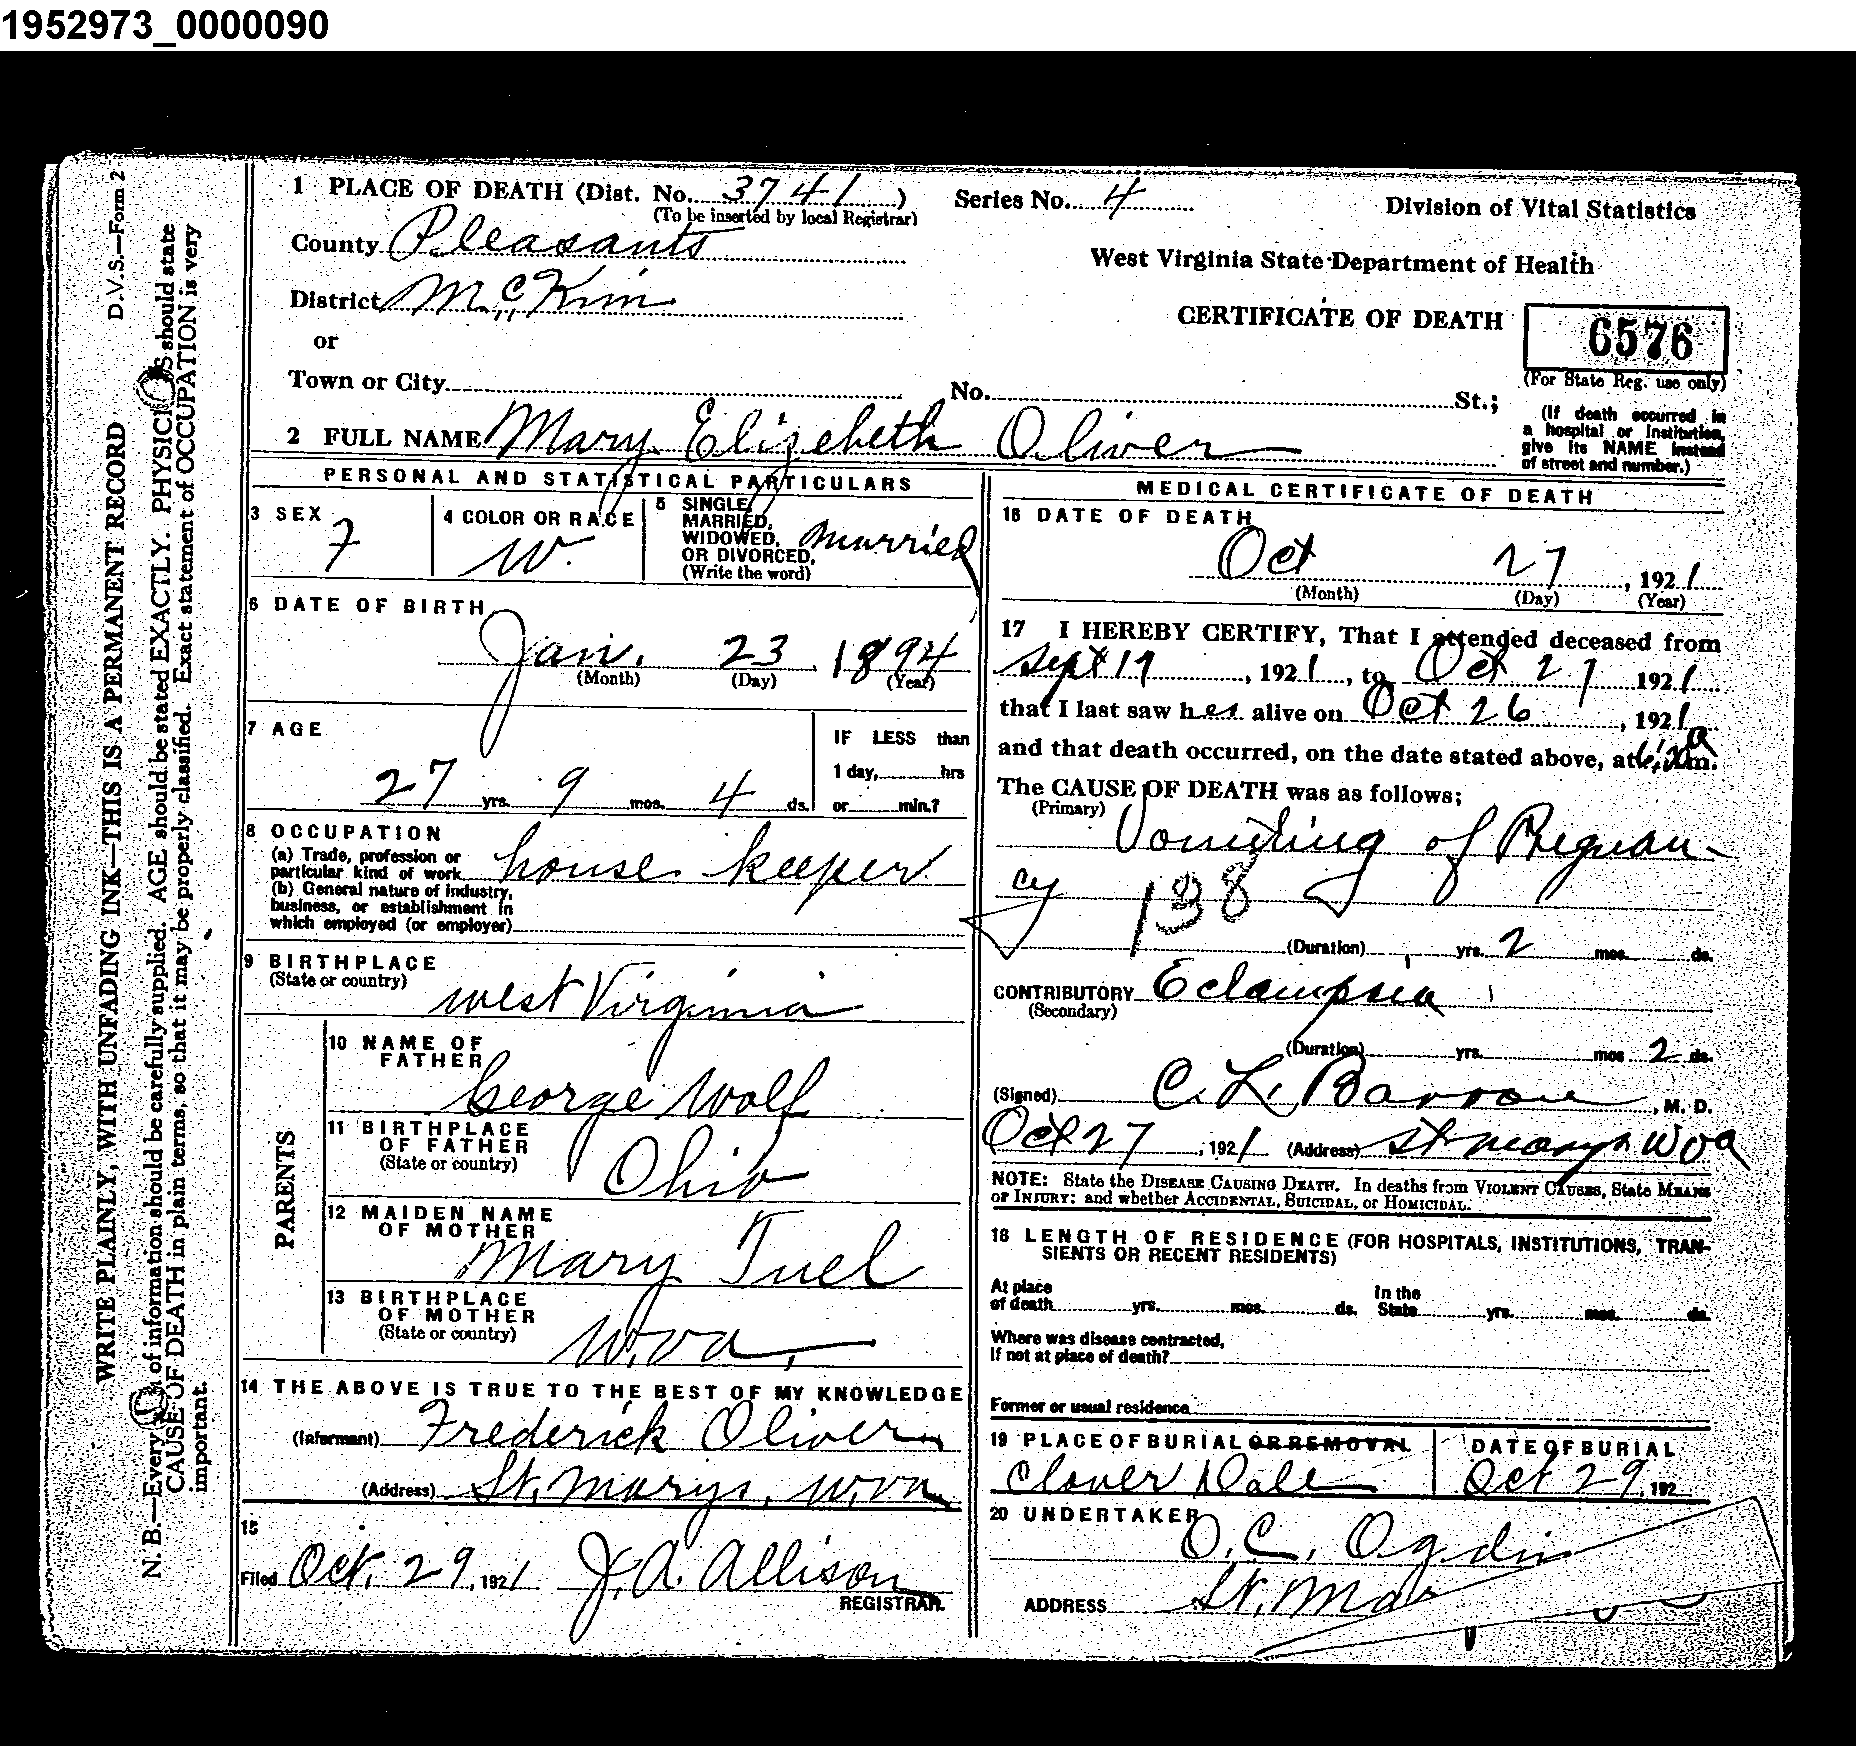 1952973_0000090
D.V.S.—Form 2
WRITE PLAINLY, WITH UNFADING INK—THIS IS A PERMANENT RECORD
N. B.—Every of information should be carefully supplied. AGE should be stated EXACTLY. PHYSICI S should state
CAUSE OF DEATH in plain terms, so that it may be properly classified. Exact statement of OCCUPATION is very
important.
1 PLACE OF DEATH (Dist. No. 3741)
(To be inserted by local Registrar)
Series No. 4
Division of Vital Statistics
County Pleasants
West Virginia State Department of Health
District McKim
CERTIFICATE OF DEATH
6576
(For State Reg. use only)
or
Town or City
No. St.;
(If death occurred in
a hospital or institution,
give its NAME instead
of street and number.)
2 FULL NAME Mary Elizebeth Oliver
PERSONAL AND STATISTICAL PARTICULARS
3 SEX
F
4 COLOR OR RACE
W.
5 SINGLE,
MARRIED,
WIDOWED,
OR DIVORCED,
(Write the word)
married
6 DATE OF BIRTH
Jan. 23 1894
(Month) (Day) (Year)
7 AGE
27 yrs. 9 mos. 4 ds.
IF LESS than
1 day, hrs
or min.?
8 OCCUPATION
(a) Trade, profession or
particular kind of work
house keeper
(b) General nature of industry,
business, or establishment in
which employed (or employer)
9 BIRTHPLACE
(State or country)
west Virginia
PARENTS
10 NAME OF
FATHER
George Wolf
11 BIRTHPLACE
OF FATHER
(State or country)
Ohio
12 MAIDEN NAME
OF MOTHER
Mary Tuel
13 BIRTHPLACE
OF MOTHER
(State or country)
W.va.
14 THE ABOVE IS TRUE TO THE BEST OF MY KNOWLEDGE
(Informant) Frederick Oliver
(Address) St. Marys, W.va
15
Filed Oct. 29, 1921 J. A. Allison
REGISTRAR.
MEDICAL CERTIFICATE OF DEATH
16 DATE OF DEATH
Oct 27, 1921
(Month) (Day) (Year)
17 I HEREBY CERTIFY, That I attended deceased from
Sept 19, 1921, to Oct 27 1921
that I last saw her alive on Oct 26, 1921
and that death occurred, on the date stated above, at a m.
The CAUSE OF DEATH was as follows;
(Primary)
Vomiting of Pregnan-
cy 138
(Duration) yrs. 2 mos. ds.
CONTRIBUTORY Eclampsia
(Secondary)
(Duration) yrs. mos 2 ds.
(Signed) C. L. Barrow, M. D.
Oct 27, 1921 (Address) St marys W va
NOTE: State the DISEASE CAUSING DEATH. In deaths from VIOLENT CAUSES, State MEANS
OF INJURY; and whether ACCIDENTAL, SUICIDAL, or HOMICIDAL.
18 LENGTH OF RESIDENCE (FOR HOSPITALS, INSTITUTIONS, TRAN-
SIENTS OR RECENT RESIDENTS)
At place
of death yrs. mos. ds.
In the
State yrs. mos. ds.
Where was disease contracted,
If not at place of death?
Former or usual residence
19 PLACE OF BURIAL OR REMOVAL
Clover Dale
DATE OF BURIAL
Oct 29, 192
20 UNDERTAKER
O. C. Ogdin
ADDRESS St. Mar